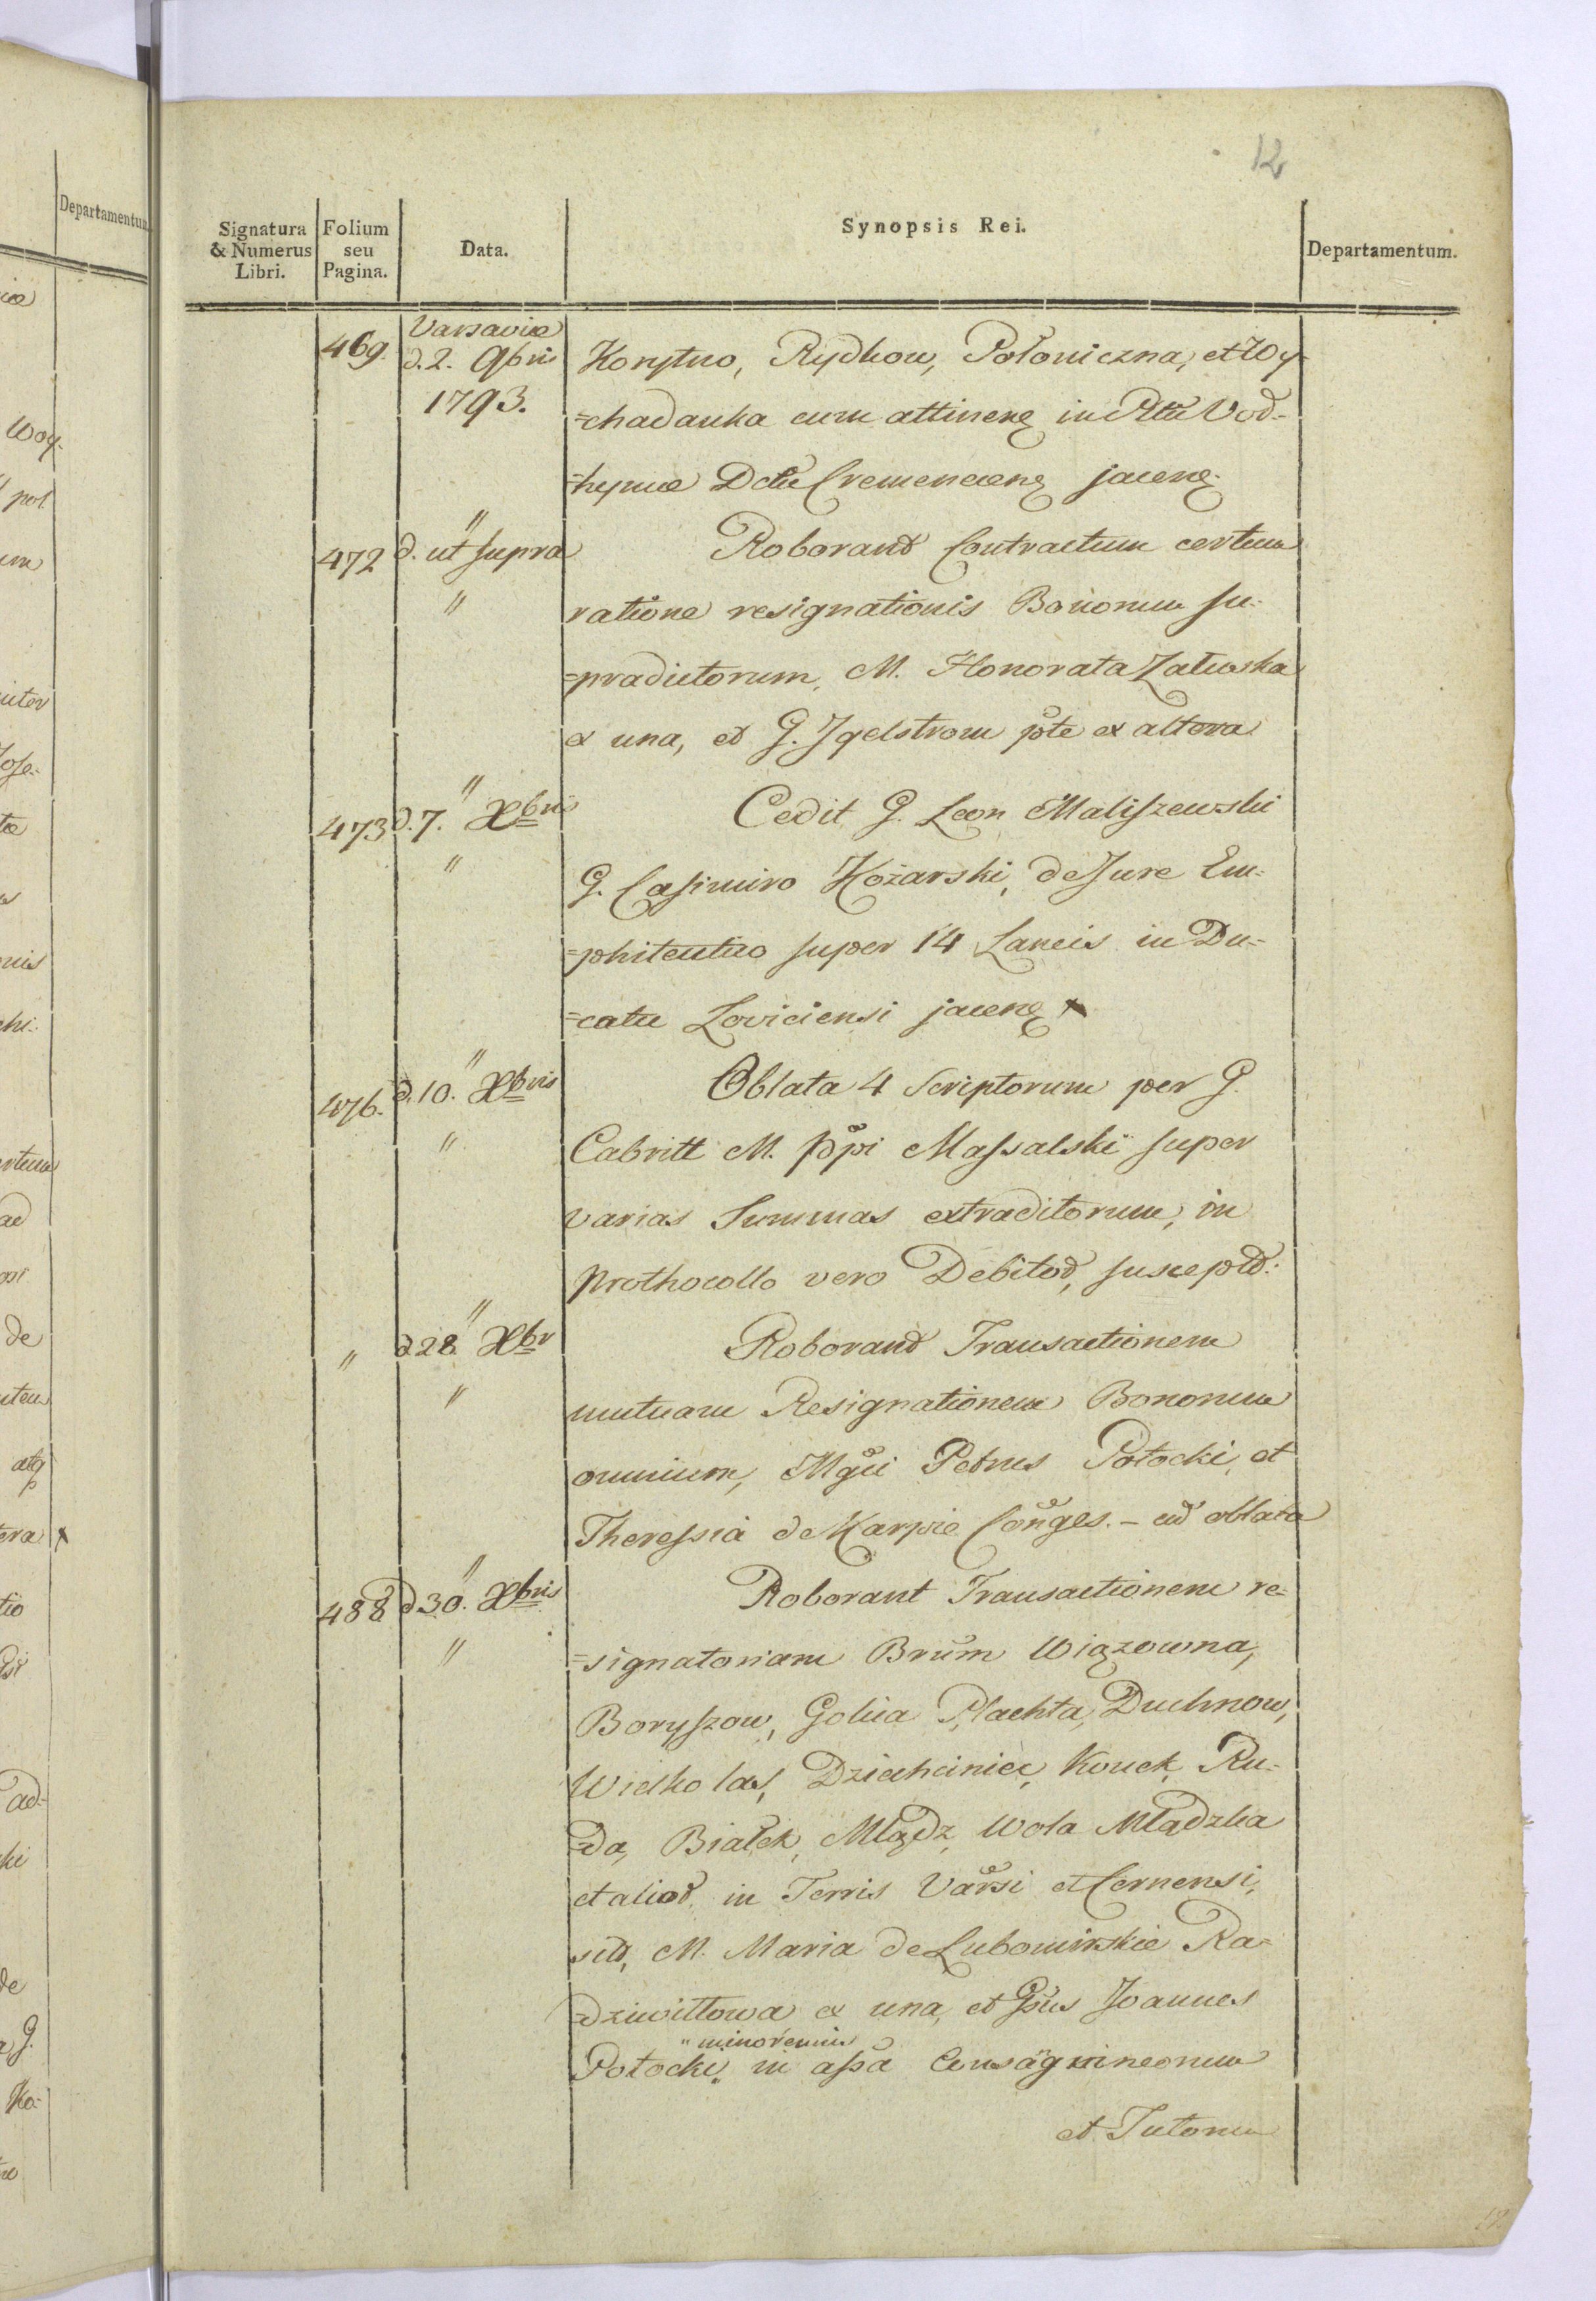 12
Signatura & Numerus Libri. | Folium seu Pagina. | Data. | Synopsis Rei. | Departamentum.
469. | Varsaviæ d. 2. 9bris 1793. | Korytno, Rydkow, Połoniczna, et Wy-
=chadanka cum attinenȩ in Pltu Vod-
=hyniæ Dctu Cremenecenȩ jacenȩ.
472 | d. ut supra | Roborand Contractum certum
" | ratione resignationis Bonorum su-
=pradictorum, M. Honorata Załuska
ex una, et G. Igelstrom pte ex altera
473 | d. 7. Xbris | Cedit G. Leon Maliszewski
" | G. Casimiro Kożarski, de Jure Em-
=phiteutico super 14 Laneis in Du-
=catu Loviciensi jacenȩ
476. | d. 10. Xbris | Oblata 4 Scriptorum per G.
" | Cabritt M. Ppi Massalski super
varias Summas extraditorum, in
Prothocollo vero Debitod, susceptd.
" | d 28 Xbr | Roborand Transactionem
" | mutuam Resignationem Bonorum
omnium, Mgci Petrus Potocki, et
Theressia de Karpie Conges. – ead oblata
488 | d 30. Xbris | Roborant Transactionem re-
" | =signatoriam Brum Wiązowna,
Boryszow, Golica Plachta, Duchnow,
Wielko las, Dziechciniec, Kouck, Ru-
=da, Białek, Mlądz, Wola Mlądzka
et aliod, in Terris Varsi et Cernensi,
sitd, M. Maria de Lubomirskie Ra-
=dziwiłłowa ex una, et Gsus Joannes
" minorennis
Potocki, in assa Consagvineorum
et Tutorum